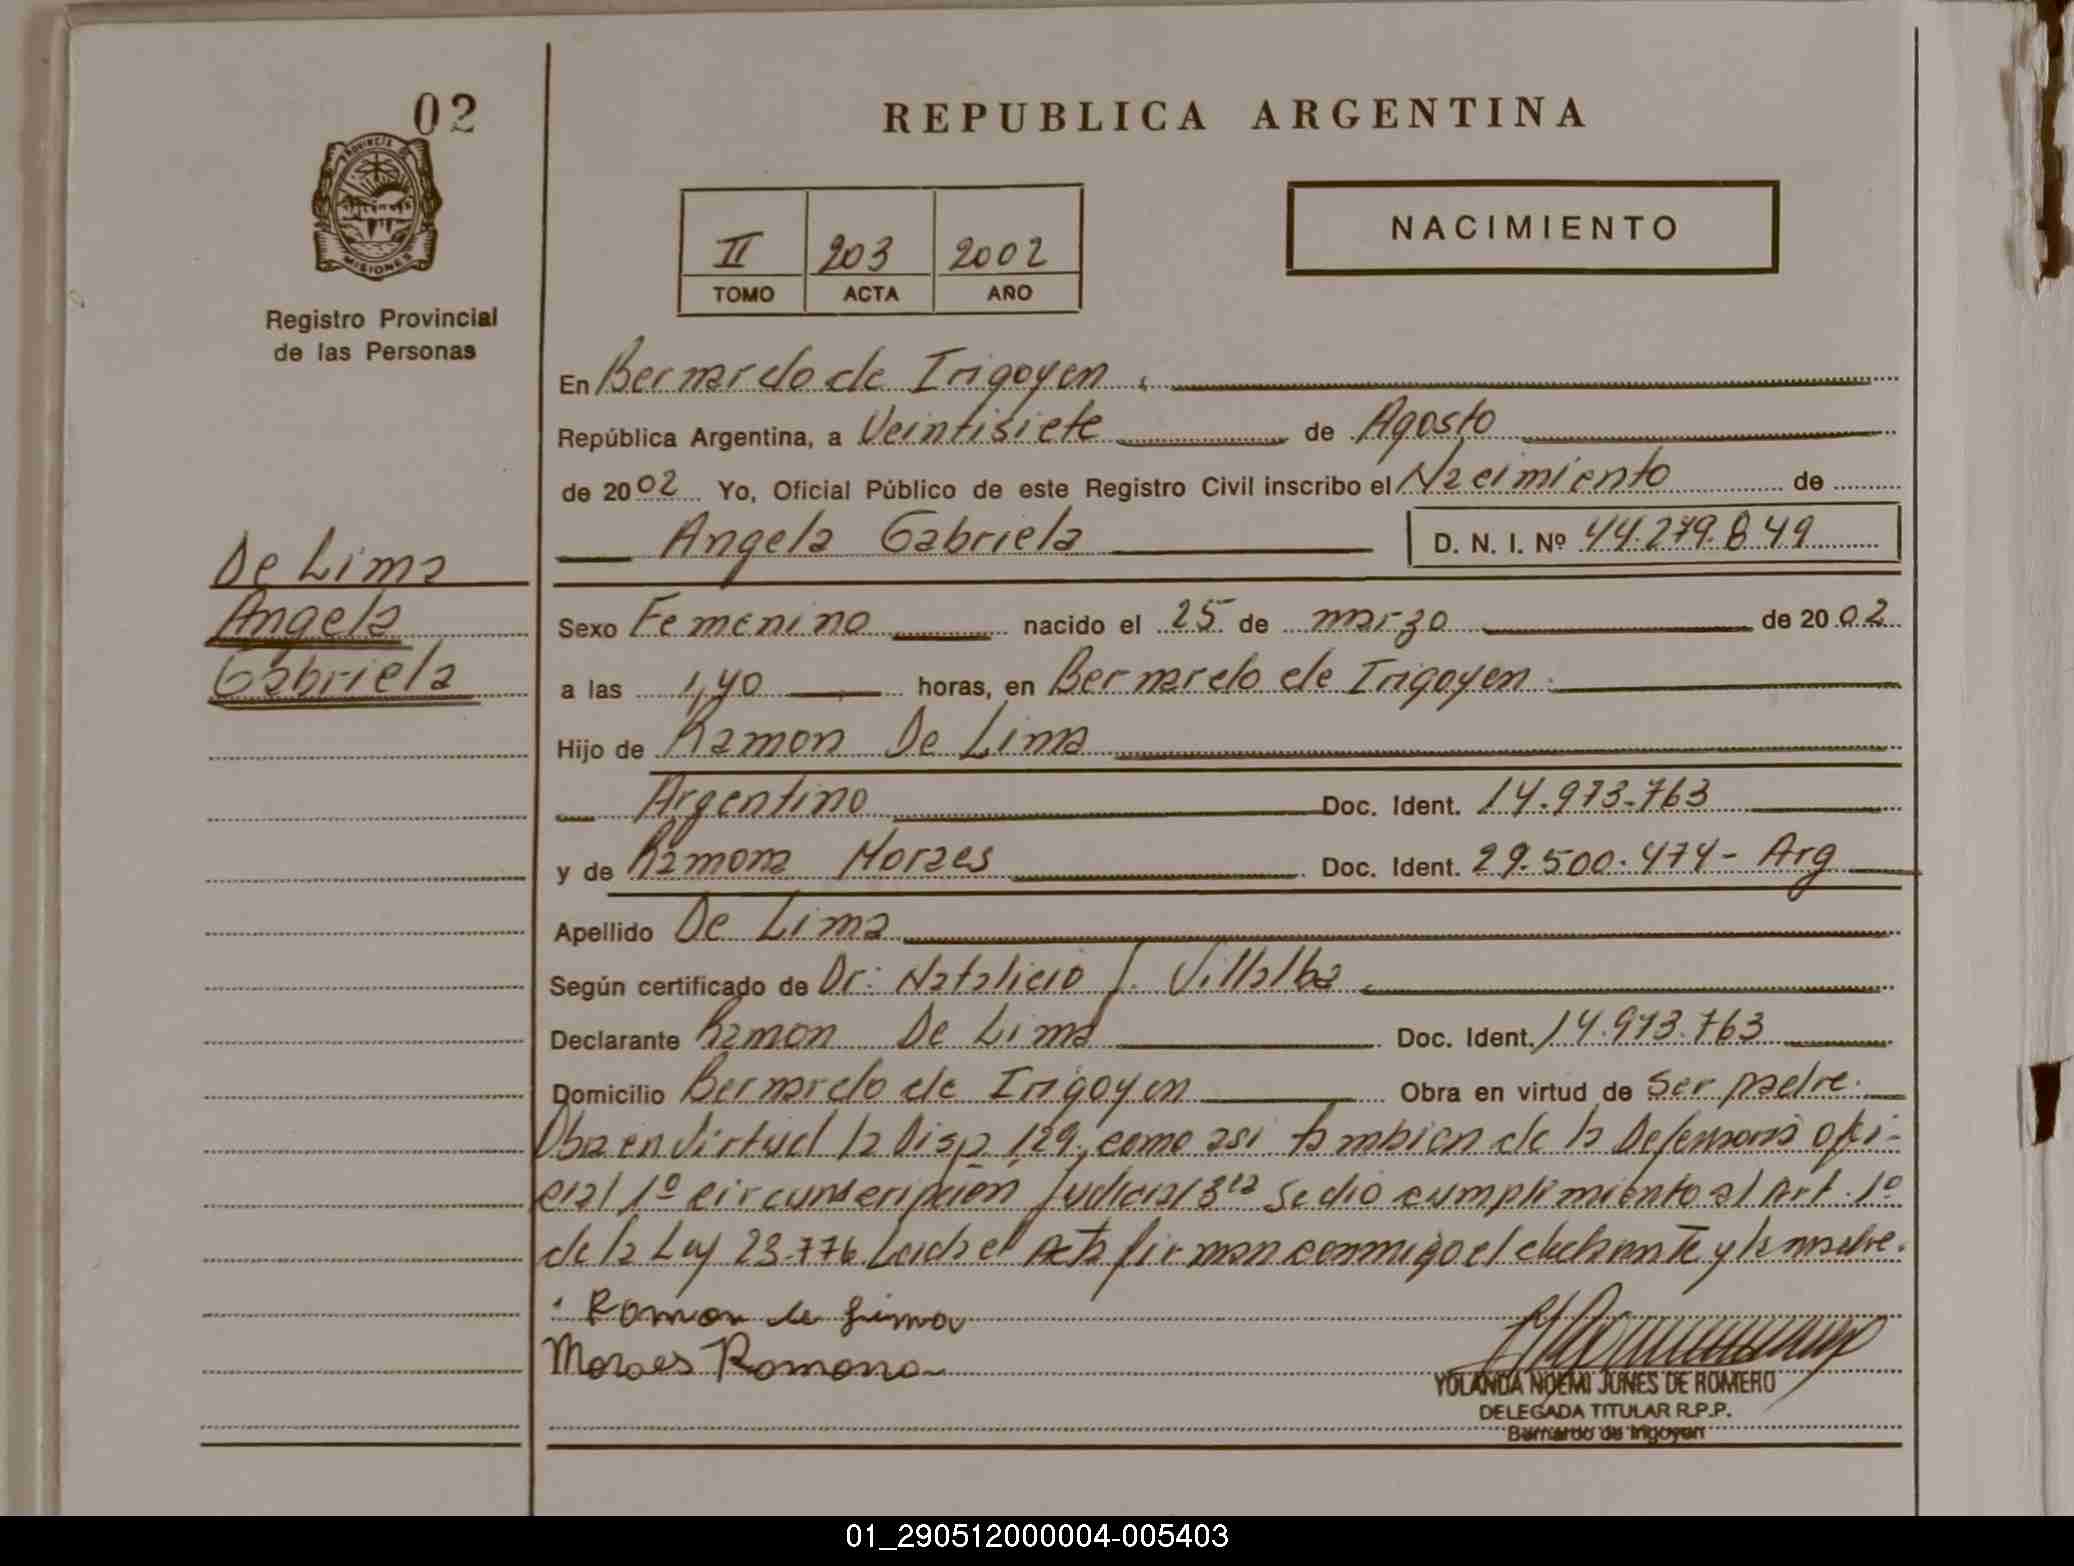 02
PROVINCIA DE
MISIONES
Registro Provincial
de las Personas
De Lima
Angela
Gabriela
REPUBLICA ARGENTINA
II 203 2002
TOMO ACTA AÑO
NACIMIENTO
En Bernardo de Irigoyen
República Argentina, a Veintisiete de Agosto
de 2002 Yo, Oficial Público de este Registro Civil inscribo el Nacimiento de
Angela Gabriela D. N. I. Nº 44.279.849
Sexo Femenino nacido el 25 de marzo de 2002
a las 1,40 horas, en Bernardo de Irigoyen.
Hijo de Ramon De Lima
Argentino Doc. Ident. 14.973.763
y de Ramona Moraes Doc. Ident. 29.500.474 - Arg
Apellido De Lima
Según certificado de Dr: Natalicio J. Villalba
Declarante Ramon De Lima Doc. Ident. 14.973.763
Domicilio Bernardo de Irigoyen Obra en virtud de Ser padre.
Obra en virtud la Disp. 129, como asi tambien de la Defensoria ofi-
cial 1º circunscripcion Judicial 3ra Se dio cumplimiento al Art. 1º
de la Ley 23.776. Leida el Acta firman conmigo el declarante y la madre.
Ramon de Lima
Moraes Ramona
YOLANDA NOEMI JUNES DE ROMERO
DELEGADA TITULAR R.P.P.
Bernardo de Irigoyen
01_290512000004-005403